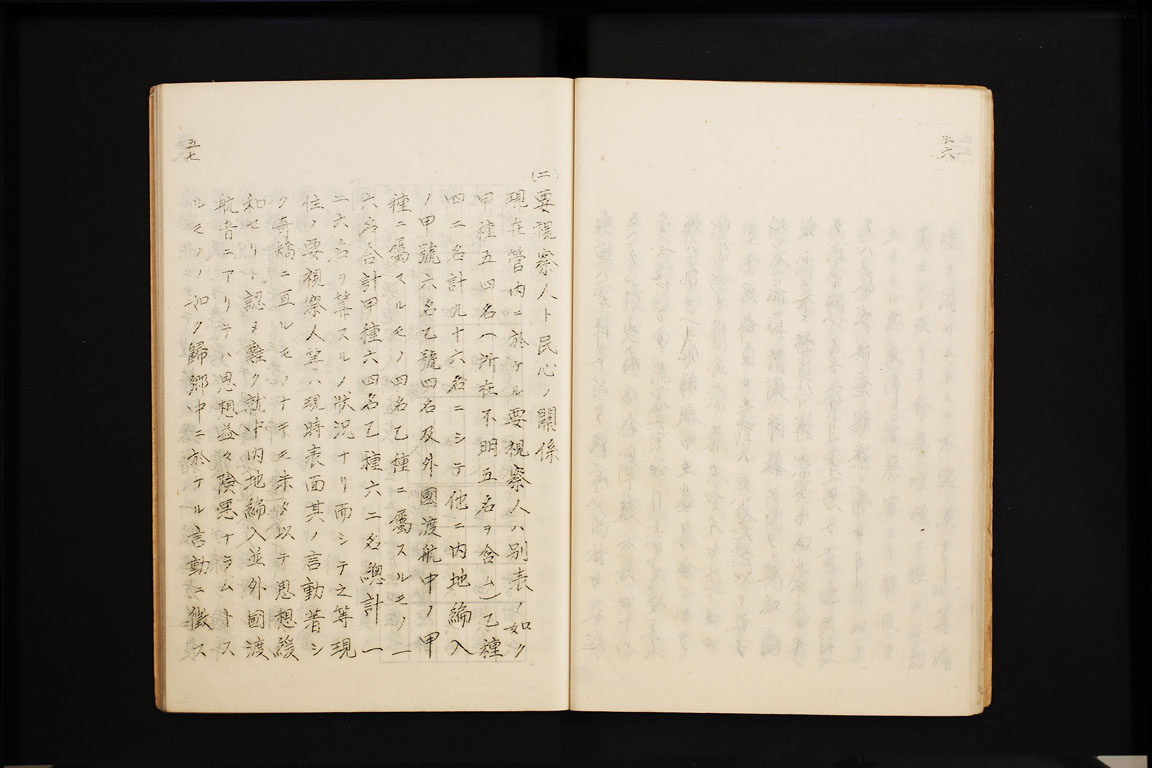 五六
(二)要視察人ト民心ノ關係
現在管內ニ於ケル要視察人ハ別表ノ如ク
甲種五四名(所在不明五名ヲ含ム)乙種
四二名計九十六名ニシテ他ニ內地編入
ノ甲號六名乙號四名及外國渡航中ノ甲
種ニ屬スルモノ四名乙種ニ屬スルモノ一
六名合計甲種六四名乙種六二名總計一
二六名ヲ算スルノ狀況ナリ而シテ之等現
住ノ要視察人等ハ現時表面其ノ言動著シ
ク奇矯ニ亘ルモノナキモ未タ以テ思想緩
和セリト認メ難ク就中內地編入並外國渡
航者ニアリテハ思想益々險惡ナラムトス
ルモノノ如ク歸鄉中ニ於ケル言動ニ徵ス
五七